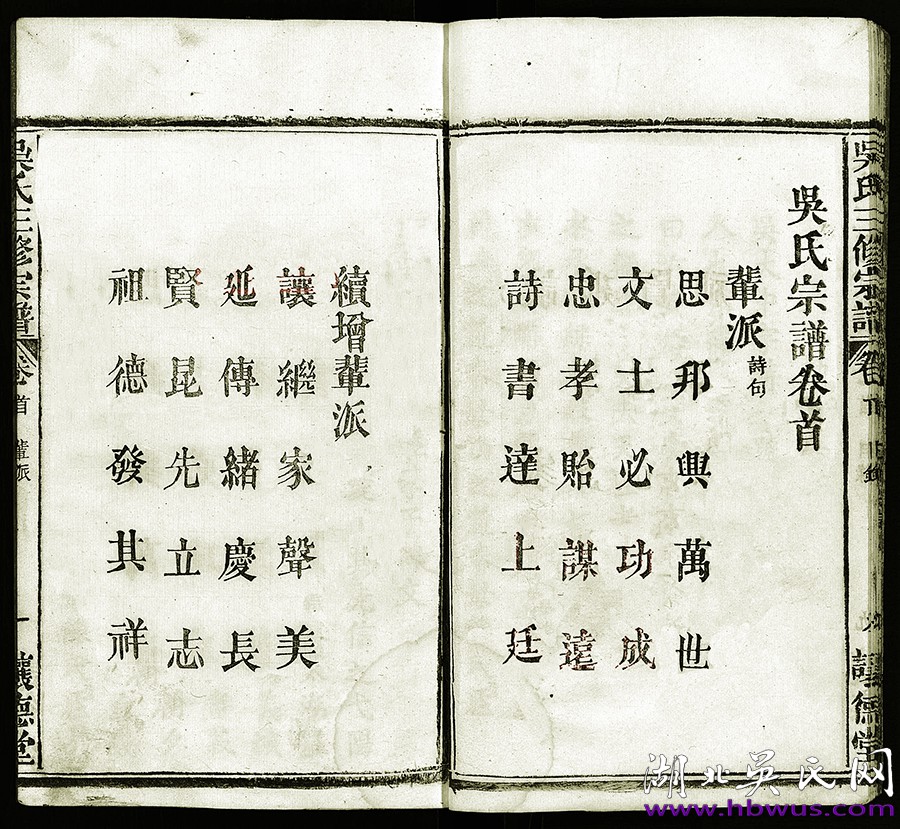 吳氏宗譜卷首
輩派詩句
思邦興萬世
文士必功成
忠孝貽謀遠
詩書達上廷
續增輩派
讓繼家聲美
延傳緒慶長
賢昆先立志
祖德發其祥
吳氏三修宗譜
卷首
輩派
一
讓德堂
吳氏三修宗譜
湖北吳氏网
www.hbwus.com